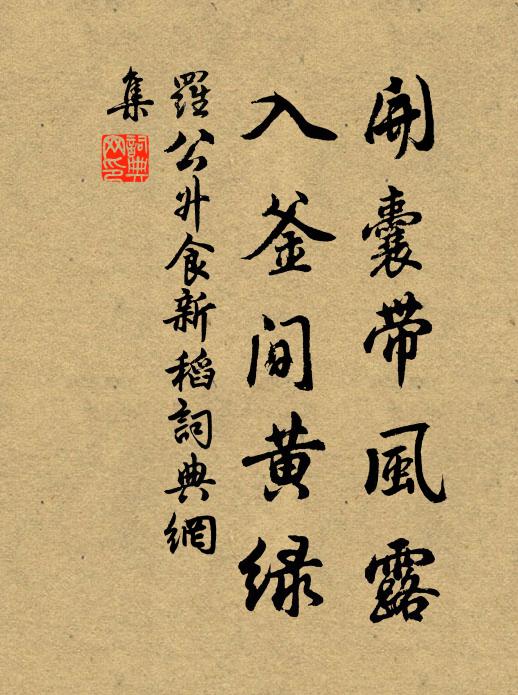 開囊帶風露
入釜間黃綠
羅公升食新稻詞典網
集
詞典網印